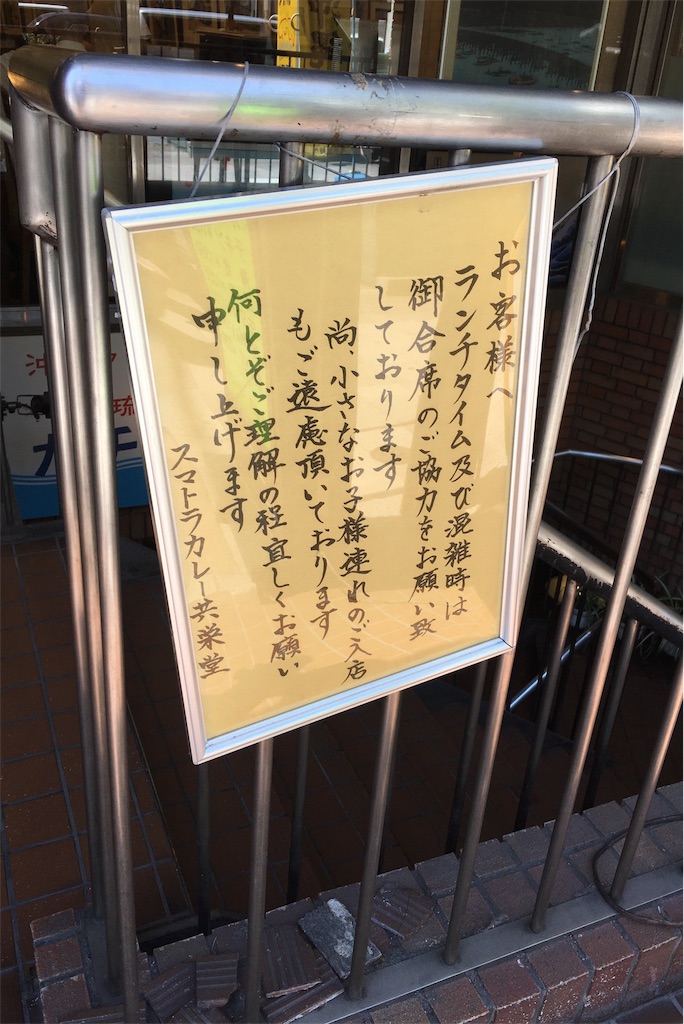 お客様へ
ランチタイム及び混雑時は
御合席のご協力をお願い致
しております
尚、小さなお子様連れのご入店
もご遠慮頂いております
何とぞご理解の程宜しくお願い
申し上げます
スマトラカレー共栄堂
沖
琉